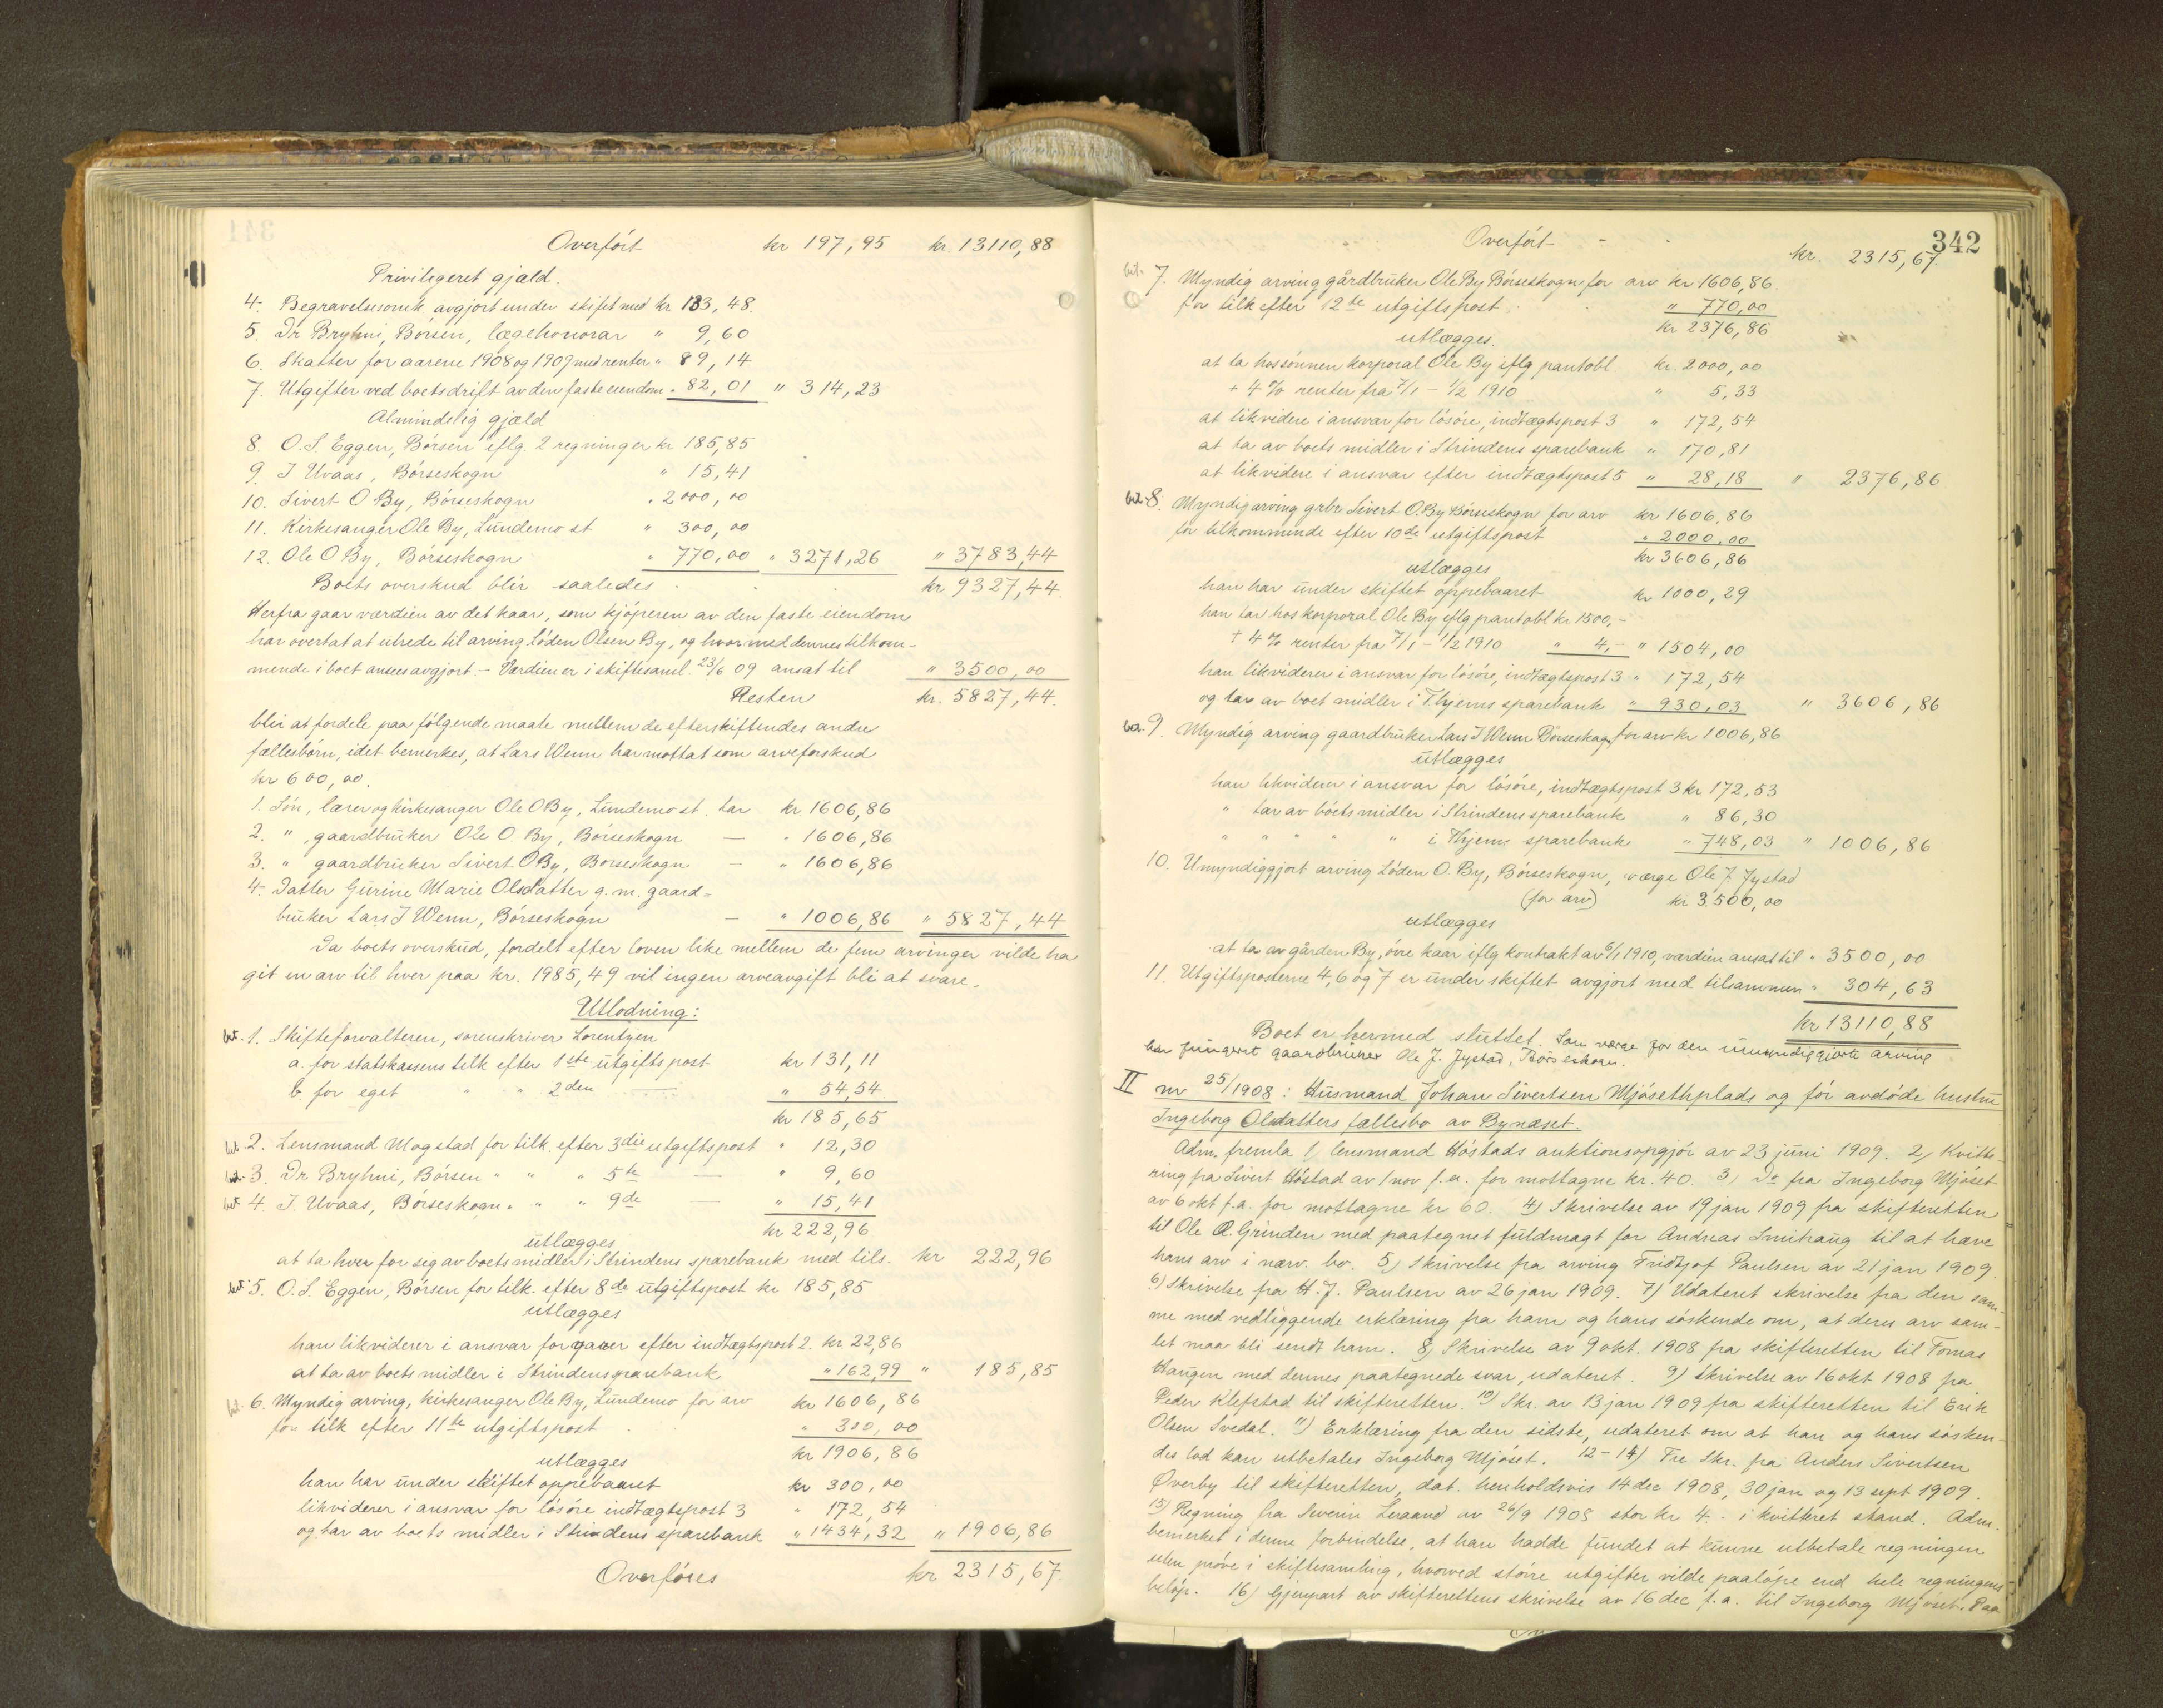 Overført kr 197,95 kr. 13110,88
Privilegeret gjæld.
4. Begravelsesomk. avgjort under skiftet med kr 133,48
5. Dr Bryhni, Børsen, lægehonorar " 9,60
6. Skatter for aarene 1908 og 1909 med renter " 89,14
7. Utgifter ved boets drift av den faste eiendom " 82,01 " 314,23
Almindelig gjæld
8. O. S. Eggen, Børsen iflg. 2 regninger kr 185,85
9. J Uvaas, Børseskogn " 15,41
10. Sivert O By, Børseskogn " 2000,00
11. Kirkesanger Ole By, Lundemo st " 300,00
12. Ole O By, Børseskogn " 770,00 " 3271,26 " 3783,44
Boets overskud blir saaledes kr 9327,44
Herfra gaar værdien av det kaar, som kjøperen av den faste eiendom
har overtat at utrede til arving Løden Olsen By, og hvormed dennes tilkom-
mende i boet ansees avgjort. – Værdien er i skiftesaml. 23/6 09 ansat til " 3500,00
Resten kr. 5827,44.
blir at fordele paa følgende maate mellem de efterskiftendes andre
fællesbørn, idet bemerkes, at Lars Wenn har mottat som arveforskud
kr 600,00.
1. Søn, lærer og kirkesanger Ole O By, Lundemo st. tar kr 1606,86
2. " , gaardbruker Ole O. By, Børseskogn — " 1606,86
3. " gaardbruker Sivert O By, Børseskogn — " 1606,86
4. Datter Gurine Marie Olsdatter g. m. gaard-
bruker Lars J Wenn, Børseskogn — " 1006,86 " 5827,44
Da boets overskud, fordelt efter loven like mellem de fem arvinger vilde ha
git en arv til hver paa kr. 1985,49 vil ingen arveavgift bli at svare.
Utlodning:
bet. 1. Skifteforvalteren, sorenskriver Lorentzen
a. for statskassens tilk efter 1ste utgiftspost kr 131,11
b. for eget " " 2den — " 54,54
kr 185,65
bet. 2. Lensmand Mogstad for tilk. efter 3die utgiftspost " 12,30
bet. 3. Dr. Bryhni, Børsen " " " 5te — " 9,60
bet. 4. J. Uvaas, Børseskogn " " " 9de — " 15,41
kr 222,96
utlægges
at ta hver for sig av boets midler i Strindens sparebank med tils. kr 222,96
bet. 5. O. S. Eggen, Børsen for tilk. efter 8de utgiftspost kr 185,85
utlægges
han likviderer i ansvar for varer efter indtægtspost 2. kr. 22,86
at ta av boets midler i Strindens sparebank " 162,99 " 185,85
bet. 6. Myndig arving, kirkesanger Ole By, Lundemo for arv kr 1606,86
for tilk efter 11te utgiftspost " 300,00
kr 1906,86
utlægges
han har under skiftet oppebaaret kr 300,00
likviderer i ansvar for løsøre indtægtspost 3 " 172,54
og tar av boets midler i Strindens sparebank " 1434,32 " 1906,86
Overføres kr 2315,67
342
Overført kr. 2315,67
bet. 7. Myndig arving gårdbruker Ole By Børseskogn for arv kr 1606,86.
for tilk efter 12te utgiftspost " 770,00
kr 2376,86
utlægges.
at ta hos sønnen korporal Ole By iflg pantobl. kr. 2000,00
+ 4 % renter fra 7/1 – 1/2 1910 " 5,33
at likvidere i ansvar for løsøre, indtægtspost 3 " 172,54
at ta av boets midler i Strindens sparebank " 170,81
at likvidere i ansvar efter indtægtspost 5 " 28,18 " 2376,86
bet. 8. Myndig arving grbr. Sivert O. By Børseskogn for arv kr 1606,86
for tilkommende efter 10de utgiftspost " 2000,00
kr 3606,86
utlægges
han har under skiftet oppebaaret kr 1000,29
han tar hos korporal Ole By iflg pantobl kr 1500,–
+ 4 % renter fra 7/1 – 1/2 1910 " 4,– " 1504,00
han likviderer i ansvar for løsøre, indtægtspost 3 " 172,54
og tar av boet midler i Thjems sparebank " 930,03 " 3606,86
bet. 9. Myndig arving gaardbruker Lars J Wenn Børseskogn for arv kr 1006,86
utlægges
han likviderer i ansvar for løsøre, indtægtspost 3 kr. 172,53
" tar av boets midler i Strindens sparebank " 86,30
" " " " " i Thjems sparebank " 748,03 " 1006,86
10. Umyndiggjort arving Løden O. By, Børseskogn, værge Ole J. Jystad
(for arv) kr 3500,00
utlægges
at ta av gården By, øvre kaar iflg kontrakt av 6/1 1910, værdien ansat til " 3500,00
11. Utgiftsposterne 4, 6 og 7 er under skiftet avgjort med tilsammen " 304,63
kr 13110,88
Boet er hermed sluttet. Som værge for den umyndiggjorte arving
har fungert gaardbruker Ole J. Jystad, Børseskogn.
II nr 25/1908: Husmand Johan Sivertsen Mjøsethplads og før avdøde hustru
Ingeborg Olsdatters fællesbo av Bynæset.
Adm. fremla 1) lensmand Høstads auktionsopgjør av 23 juni 1909. 2) Kvitte-
ring fra Sivert Høstad av 1 nov f.a. for mottagne kr. 40. 3) Do fra Ingeborg Mjøset
av 6 okt f.a. for mottagne kr 60. 4) Skrivelse av 19 jan 1909 fra skifteretten
til Ole O. Grinden med paategnet fuldmagt for Andreas Smihaug til at hæve
hans arv i nærv. bo. 5) Skrivelse fra arving Fridtjof Paulsen av 21 jan 1909.
6) Skrivelse fra H. J. Paulsen av 26 jan 1909. 7) Udateret skrivelse fra den sam-
me med vedliggende erklæring fra ham og hans søskende om, at deres arv sam-
let maa bli sendt ham. 8) Skrivelse av 9 okt. 1908 fra skifteretten til Tomas
Haugen med dennes paategnede svar, udateret. 9) Skrivelse av 16 okt 1908 fra
Peder Klefstad til skifteretten. 10) Skr. av 13 jan 1909 fra skifteretten til Erik
Olsen Svedal. 11) Erklæring fra den sidste, udateret om at han og hans søsken-
des lod kan utbetales Ingeborg Mjøset. 12–14) Tre Skr. fra Anders Sivertsen
Øverby til skifteretten, dat. henholdsvis 14 dec 1908, 30 jan og 13 sept 1909.
15) Regning fra Severin Leraand av 26/9 1908 stor kr 4.– i kvitteret stand. Adm.
bemerket i denne forbindelse, at han hadde fundet at kunne utbetale regningen
uten prøve i skiftesamling, hvorved større utgifter vilde paaløpe end hele regningens
beløp. 16) Gjenpart av skifterettens skrivelse av 16 dec f.a. til Ingeborg Mjøset. Paa